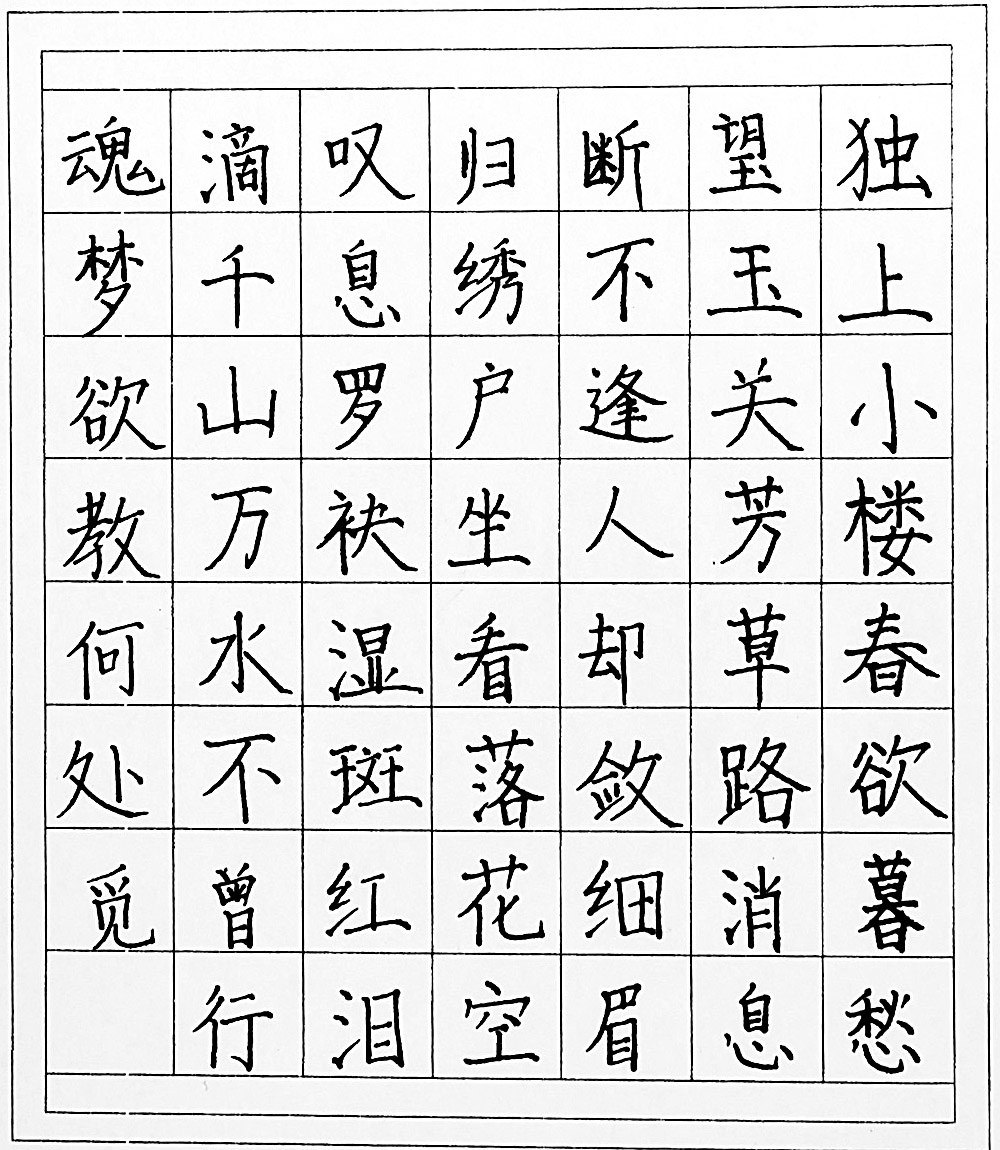 独上小楼春欲暮愁
望玉关芳草路消息
断不逢人却敛细眉
归绣户坐看落花空
叹息罗袂湿斑红泪
滴千山万水不曾行
魂梦欲教何处觅